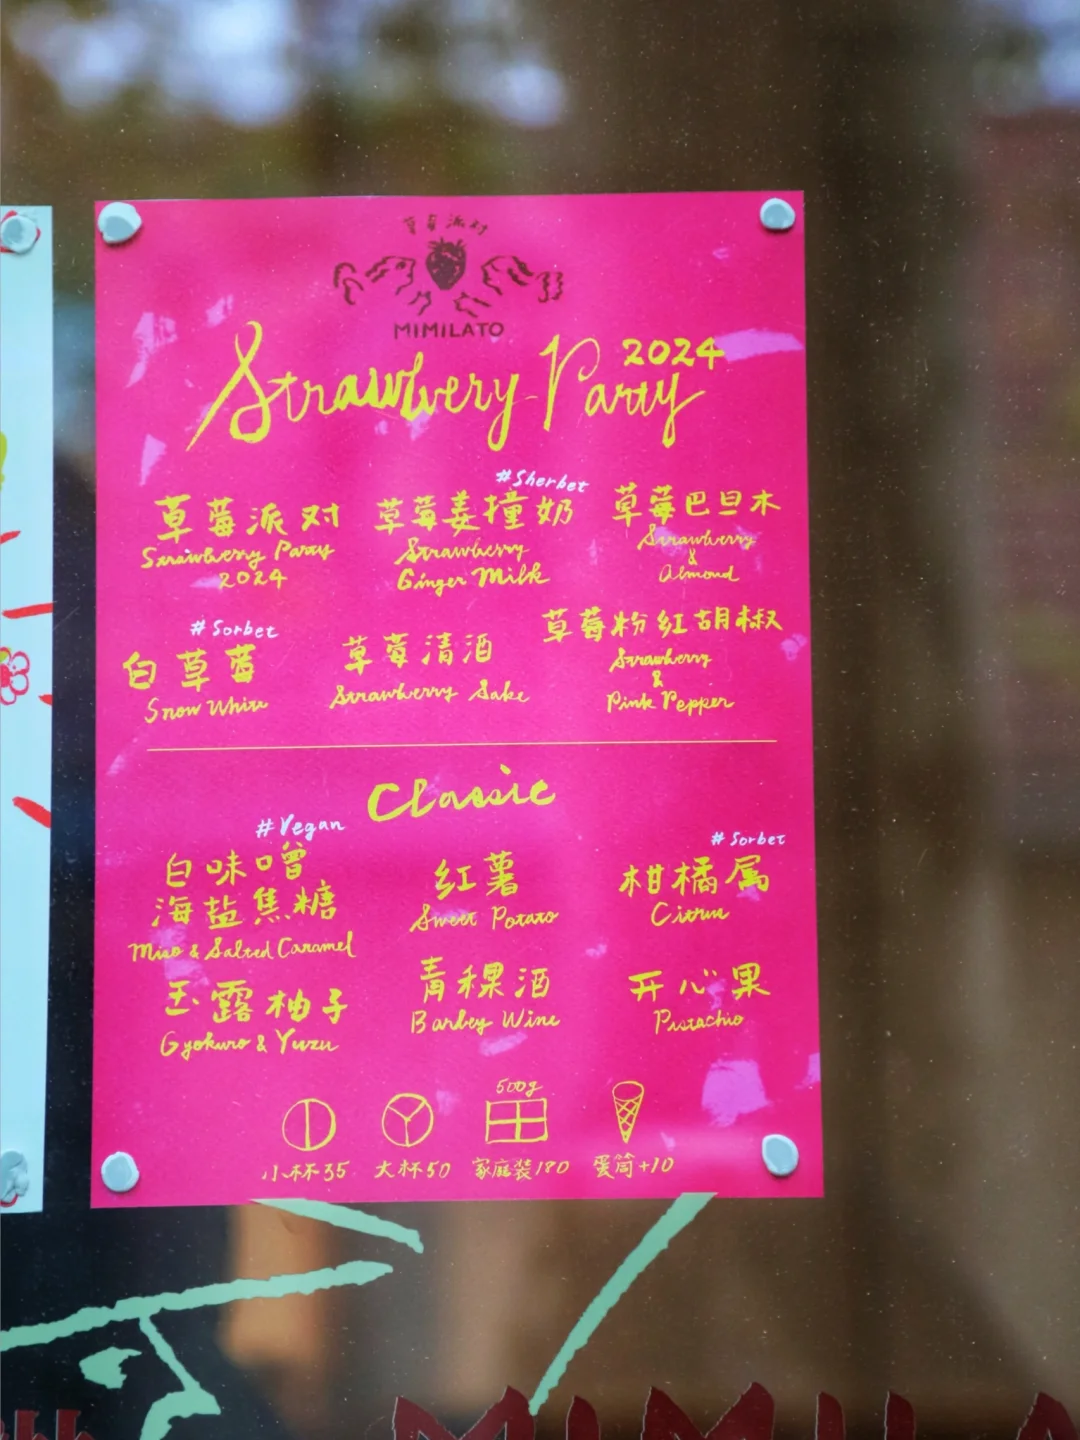 草莓派对
MIMILATO
Strawberry Party 2024
#Sherbet
草莓派对
Strawberry Party
2024
草莓姜撞奶
Strawberry
Ginger Milk
草莓巴旦木
Strawberry
&
Almond
#Sorbet
白草莓
Snow White
草莓清酒
Strawberry Sake
草莓粉红胡椒
Strawberry
&
Pink Pepper
Classic
#Vegan
白味噌
海盐焦糖
Miso & Salted Caramel
红薯
Sweet Potato
#Sorbet
柑橘属
Citrus
玉露柚子
Gyokuro & Yuzu
青稞酒
Barley Wine
开心果
Pistachio
500g
小杯35 大杯50 家庭装180 蛋筒+10